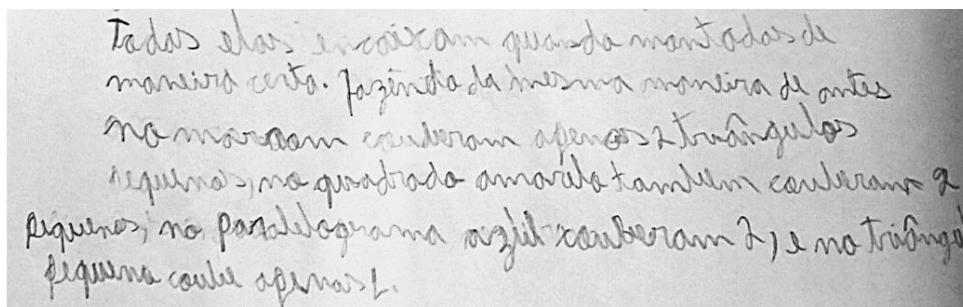 Todas elas encaixam quando montadas de
maneira certa. Fazendo da mesma maneira de antes
no marrom couberam apenas 2 triângulos
pequenos, no quadrado amarelo tambem couberam 2
pequenos, no paralelograma azul couberam 2, e no triângul
pequeno coube apenas 1.